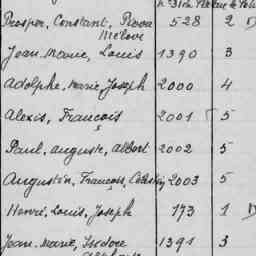 Prosper, Constant, Pierre 528 2
Jean-Marie, Louis 1390 3
Adolphe, Marie, Joseph 2000 4
Alexis, François 2001 5
Paul, Auguste, Albert 2002 5
Augustin, François, Célestin 2003 5
Henri, Louis, Joseph 173 1
Jean-Marie, Isidore 1391 3